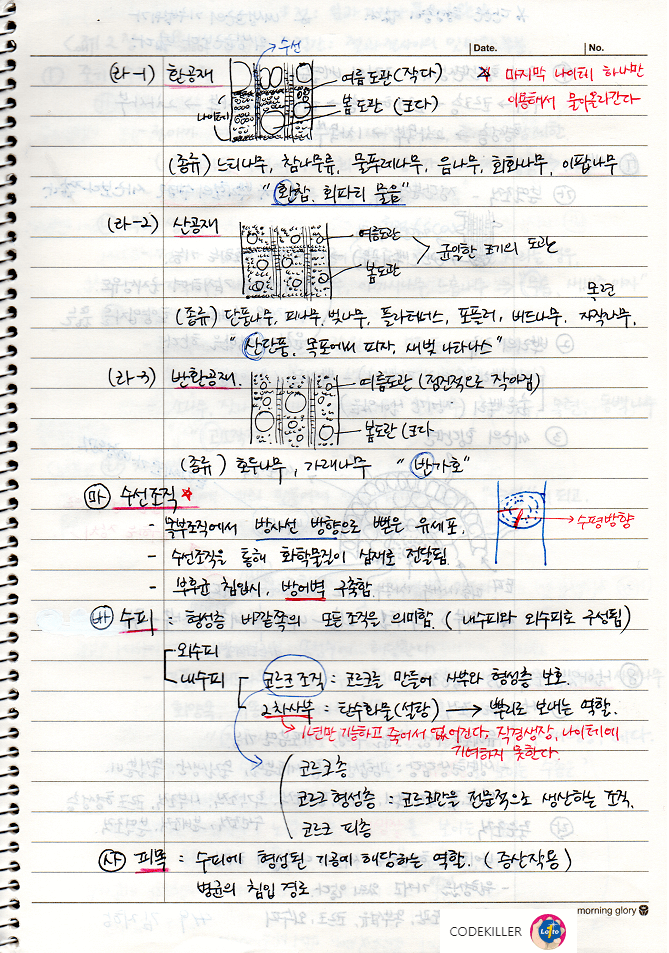 수선
Date. No.
(라-1) 환공재
여름도관(작다)
☆ 마지막 나이테 하나만
이용해서 물이올라간다
나이테
봄도관(크다)
(종류) 느티나무, 참나무류, 물푸레나무, 음나무, 회화나무, 이팝나무
"환참, 회파티 물음"
(라-2) 산공재
여름도관
균일한 크기의 도관
봄도관
목련
(종류) 단풍나무, 피나무, 벚나무, 플라타너스, 포플러, 버드나무, 자작나무,
"산단풍, 목포에써 피자, 새벚 나타나스"
(라-3) 반환공재.
여름도관 (점진적으로 작아짐)
봄도관 (크다)
(종류) 호두나무, 가래나무 "반가호"
마 수선조직 ☆
- 목부조직에서 방사선 방향으로 뻗은 유세포.
수평방향
- 수선조직을 통해 화학물질이 심재로 전달됨.
- 부후균 침입시, 방어벽 구축함.
바 수피 : 형성층 바깥쪽의 모든조직을 의미함. (내수피와 외수피로 구성됨)
외수피
내수피
코르크조직 : 코르크를 만들어 사부와 형성층 보호.
2차사부 : 탄수화물(설탕) → 뿌리로 보내는 역할.
1년만 기능하고 죽어서 없어진다. 직경생장, 나이테에
기여하지 못한다.
코르크층
코르크 형성층 : 코르크만을 전문적으로 생산하는 조직.
코르크 피층
사 피목 : 수피에 형성된 기공에 해당하는 역할. (증산작용)
병균의 침입 경로
morning glory
CODEKILLER
Lotto